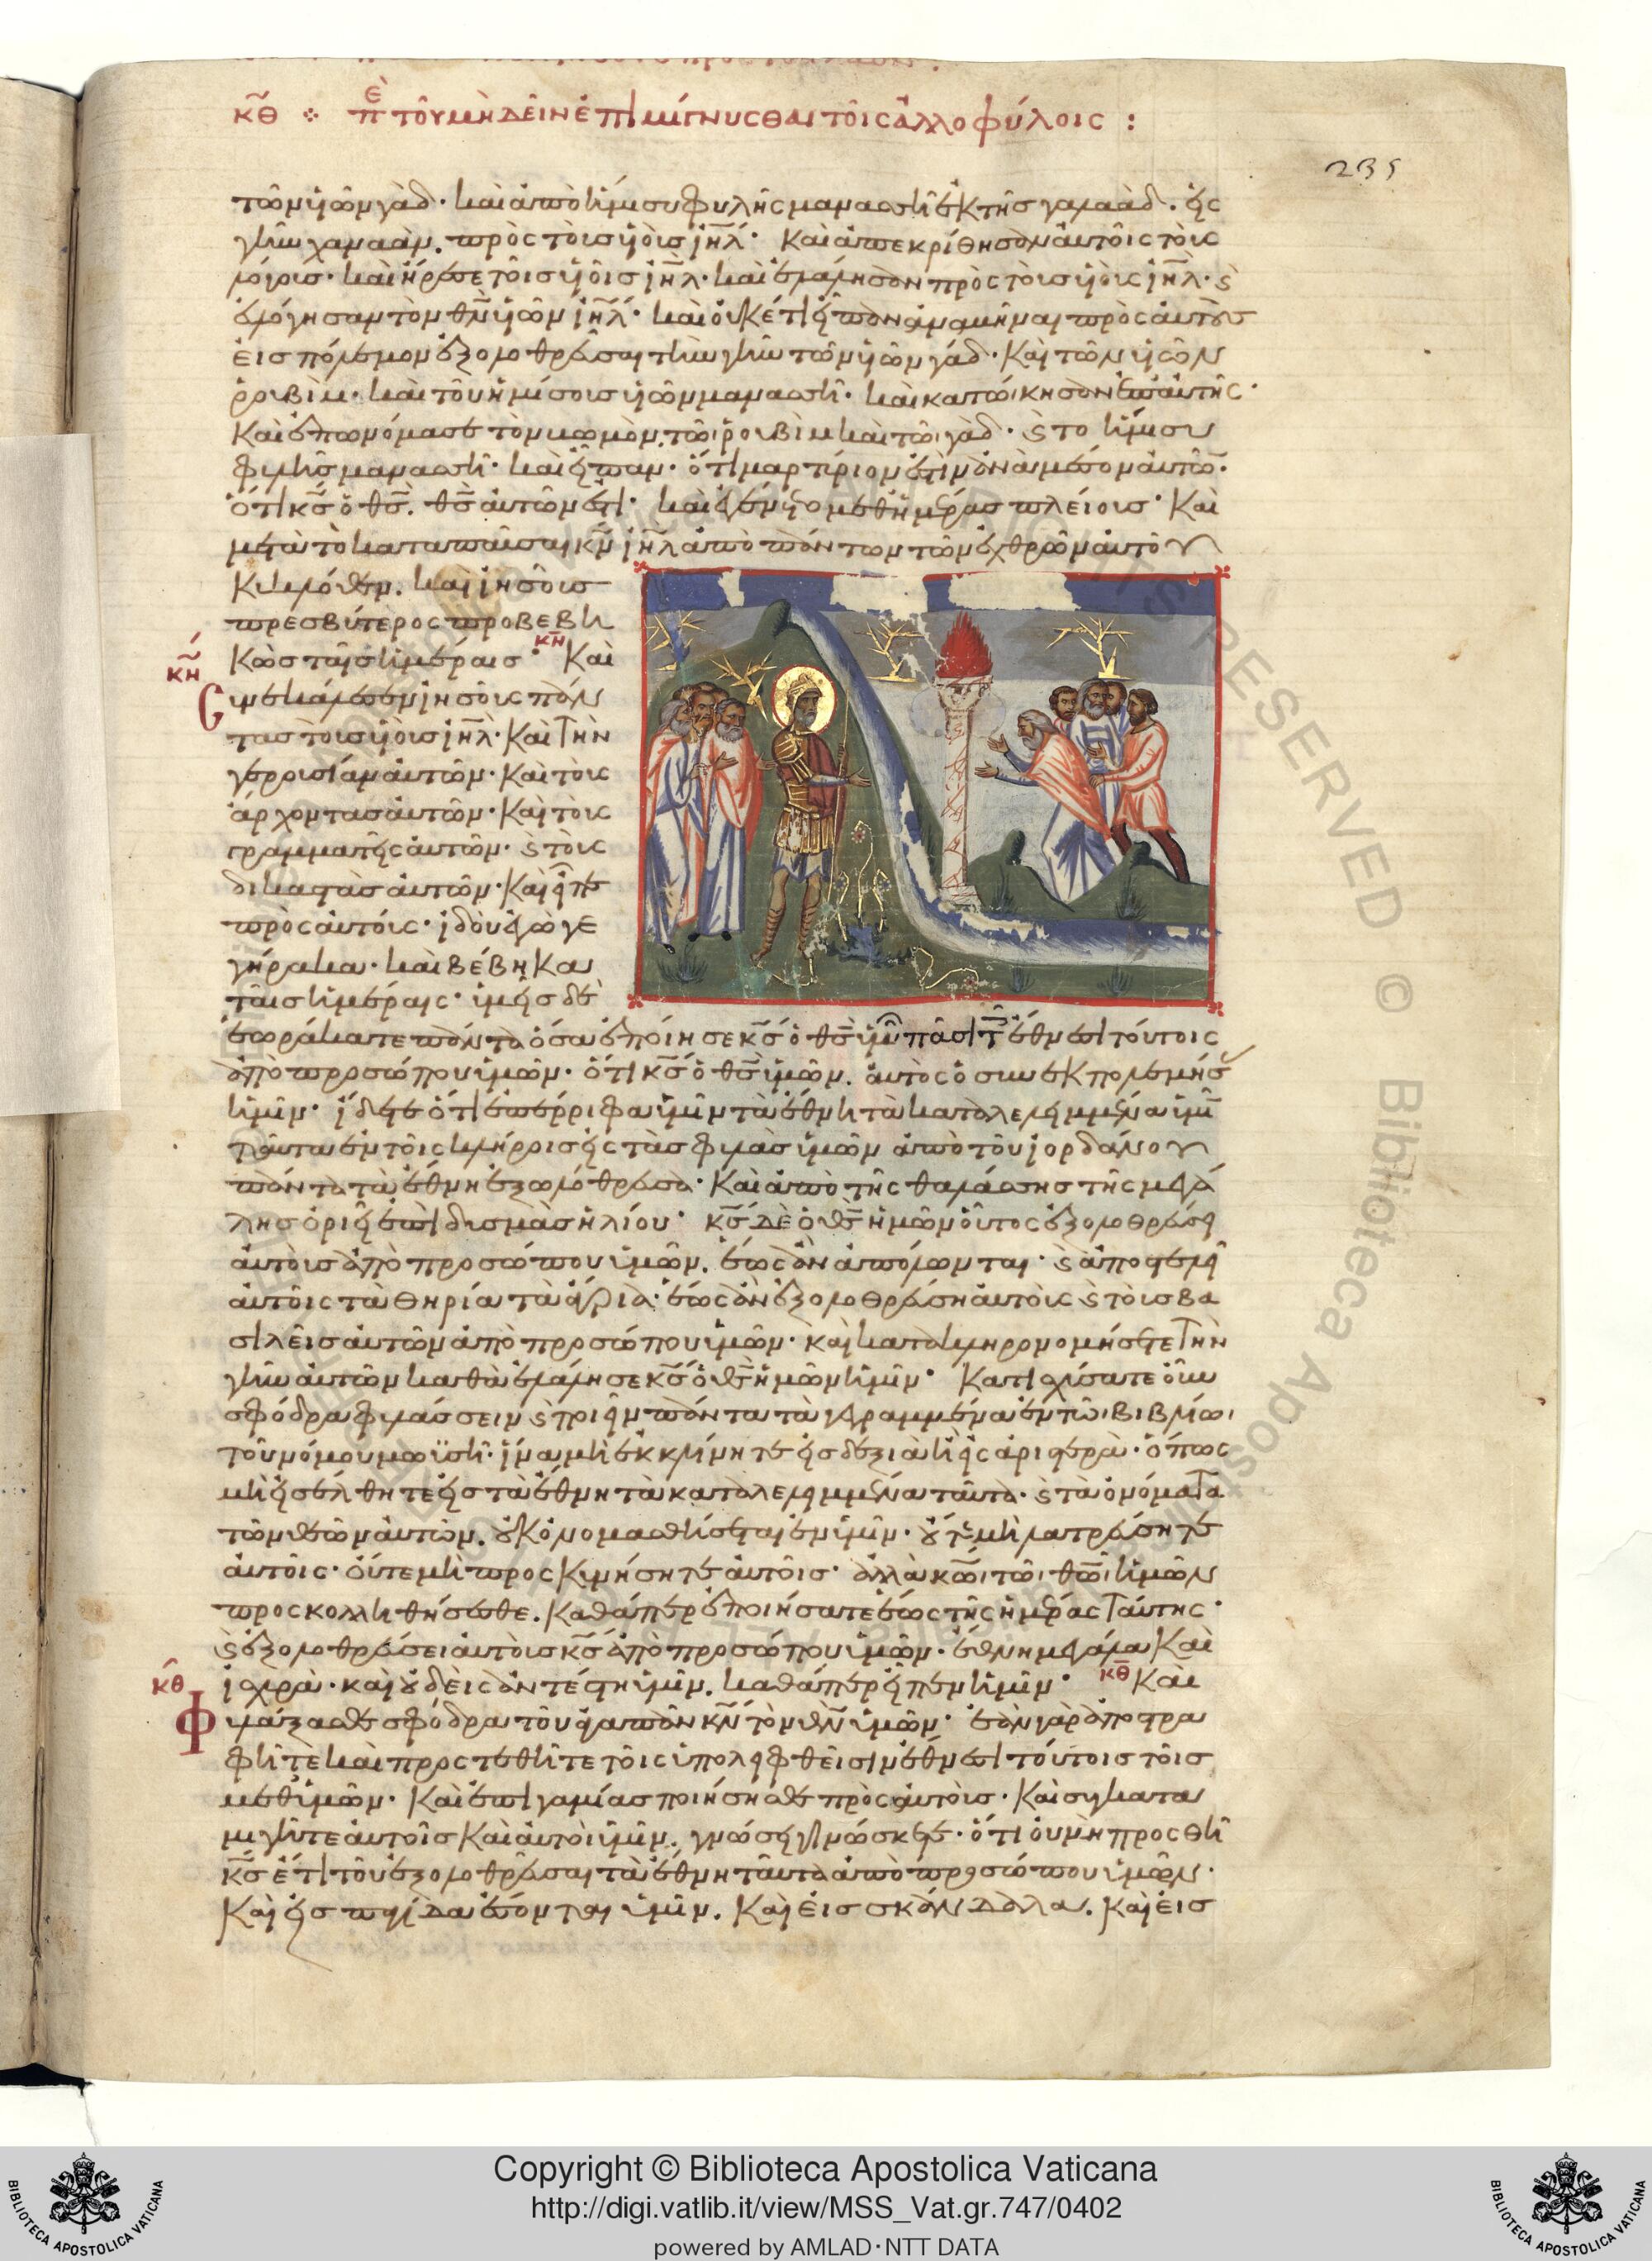 κθ ⁘ πὲ τοῦ μὴ δεῖν ἐπιμίγνυσθαι τοῖς ἀλλοφύλοις :
235
τῶν υἱῶν γάδ· καὶ ἀπὸ ἡμίσου φυλῆς μανασσῆ ἐκ τῆς γαλαάδ. εἰς
γῆν χαναάν. πρὸς τοὺς υἱοὺς ιηλ· Καὶ ἀπεκρίθησαν αὐτοῖς τοὺς
λόγους· καὶ ἤρεσε τοῖς υἱοῖς ιηλ· καὶ ἐλάλησαν πρὸς τοὺς υἱοὺς ιηλ· ϛ
εὐλόγησαν τὸν θν υἱῶν ιηλ· καὶ οὐκέτι εἶπαν ἀναβῆναι πρὸς αὐτοὺς
εἰς πόλεμον ἐξολοθρεῦσαι τὴν γῆν τῶν υἱῶν γάδ· Καὶ τῶν υἱῶν
ρουβὶμ· καὶ τοῦ ἡμίσους υἱῶν μανασσῆ· καὶ κατώικησαν ἐπ αὐτῆς·
Καὶ ἐπωνόμασε τὸν βωμὸν τῶι ρουβὶμ καὶ τῶι γάδ· ϛ το ἥμισυ
φυλῆς μανασσῆ· καὶ εἶπαν· ὅτι μαρτύριόν ἐστιν ἀναμέσον αὐτῶν·
ὅτι κς ὁ θς. θς αὐτῶν ἐστι· καὶ ἐγένετο μεθ ἡμέρας πλείους· Καὶ
μετὰ τὸ καταπαῦσαι κν ιηλ ἀπὸ πάντων τῶν ἐχθρῶν αὐτοῦ
Κυκλόθεν. καὶ ιησοῦς
πρεσβύτερος προβεβη
Κὼς ταῖς ἡμέραις· κη Καὶ
κη
Συνεκάλεσεν ιησοῦς πάν
τας τοὺς υἱοὺς ιηλ· Καὶ τὴν
γερουσίαν αὐτῶν· Καὶ τοὺς
ἄρχοντας αὐτῶν· Καὶ τοὺς
γραμματεῖς αὐτῶν· ϛ τοὺς
δικαστὰς αὐτῶν· Καὶ εἶπε
πρὸς αὐτούς· ἰδοὺ ἐγὼ γε
γήρακα· καὶ βέβηκα
ταῖς ἡμέραις· ὑμεῖς δὲ
ἑωράκατε πάντα ὅσα ἐποίησε κς ὁ θς ὑμῶν πᾶσι τοῖς ἔθνεσι τούτοις
ἀπὸ προσώπου ὑμῶν· ὅτι κς ὁ θς ὑμῶν. αὐτὸς ὁ συνεκπολεμήσας
ὑμῖν· ἴδετε ὅτι ἐπέρριφα ὑμῖν τὰ ἔθνη τὰ καταλελειμμένα ὑμῖν
ταῦτα ἐν τοῖς κλήροις εἰς τὰς φυλὰς ὑμῶν ἀπὸ τοῦ ιορδάνου
πάντα τὰ ἔθνη ἐξωλόθρευσα· Καὶ ἀπὸ τῆς θαλάσσης τῆς μεγά
λης ὁριεῖ ἐπὶ δυσμὰς ἡλίου· κς δὲ ὁ θς ἡμῶν οὗτος ἐξολοθρεύσει
αὐτοὺς ἀπὸ προσώπου ὑμῶν. ἕως ἂν ἀπόλωνται· ϛ ἀποστελεῖ
αὐτοῖς τὰ θηρία τὰ ἄγρια· ἕως ἂν ἐξολοθρεύση αὐτοὺς ϛ τοὺς βα
σιλεῖς αὐτῶν ἀπὸ προσώπου ὑμῶν· καὶ κατακληρονομήσετε τὴν
γῆν αὐτῶν καθὰ ἐλάλησε κς ὁ θς ἡμῶν ὑμῖν· Κατισχύσατε οὖν
σφόδρα φυλάσσειν ϛ ποιεῖν πάντα τὰ γεγραμμένα ἐν τῶι βιβλίωι
τοῦ νόμου μωϋσῆ· ἵνα μὴ ἐκκλίνητε εἰς δεξιὰ ἢ εἰς ἀριστερὰ· ὅπως
μὴ εἰσέλθητε εἰς τὰ ἔθνη τὰ καταλελειμμένα ταῦτα· ϛ τὰ ὀνόματα
τῶν θεῶν αὐτῶν. οὐκ ὀνομασθήσεται ἐν ὑμῖν· οὔτε μὴ λατρεύσητε
αὐτοῖς· οὔτε μὴ προσκυνήσητε αὐτοῖς· ἀλλὰ κωι τῶι θωι ἡμῶν
προσκολληθήσεσθε. Καθάπερ ἐποιήσατε ἕως τῆς ἡμέρας ταύτης·
ϛ ἐξολοθρεύσει αὐτοὺς κς ἀπὸ προσώπου ὑμῶν· ἔθνη μεγάλα Καὶ
ἰσχυρὰ· καὶ οὐδεὶς ἀντέστη ὑμῖν. καθάπερ εἶπεν ὑμῖν· κθ Καὶ
κθ
Φυλάξασθε σφόδρα τοῦ ἀγαπᾶν κν τὸν θν ὑμῶν· ἐὰν γὰρ ἀποστρα
φῆτε καὶ προστεθῆτε τοῖς ὑπολειφθεῖσιν ἔθνεσι τούτοις τοῖς
μεθ ὑμῶν· Καὶ ἐπιγαμίας ποιήσησθε πρὸς αὐτοὺς· Καὶ συγκατα
μιγῆτε αὐτοῖς Καὶ αὐτοὶ ὑμῖν. γνώσει γινώσκετε· ὅτι οὐ μὴ προσθῆ
κς ἔτι τοῦ ἐξολοθρεῦσαι τὰ ἔθνη ταῦτα ἀπὸ προσώπου ὑμῶν·
Καὶ εἰς παγίδα ἔσονται ὑμῖν. Καὶ εἰς σκάνδαλα. καὶ εἰς
Copyright © Biblioteca Apostolica Vaticana
http://digi.vatlib.it/view/MSS_Vat.gr.747/0402
powered by AMLAD·NTT DATA
BIBLIOTECA APOSTOLICA VATICANA
BIBLIOTECA APOSTOLICA VATICANA